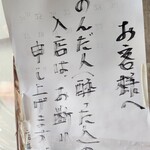 お客様へ
のんだ人(酔った人)の
入店はお断り
申し上げます